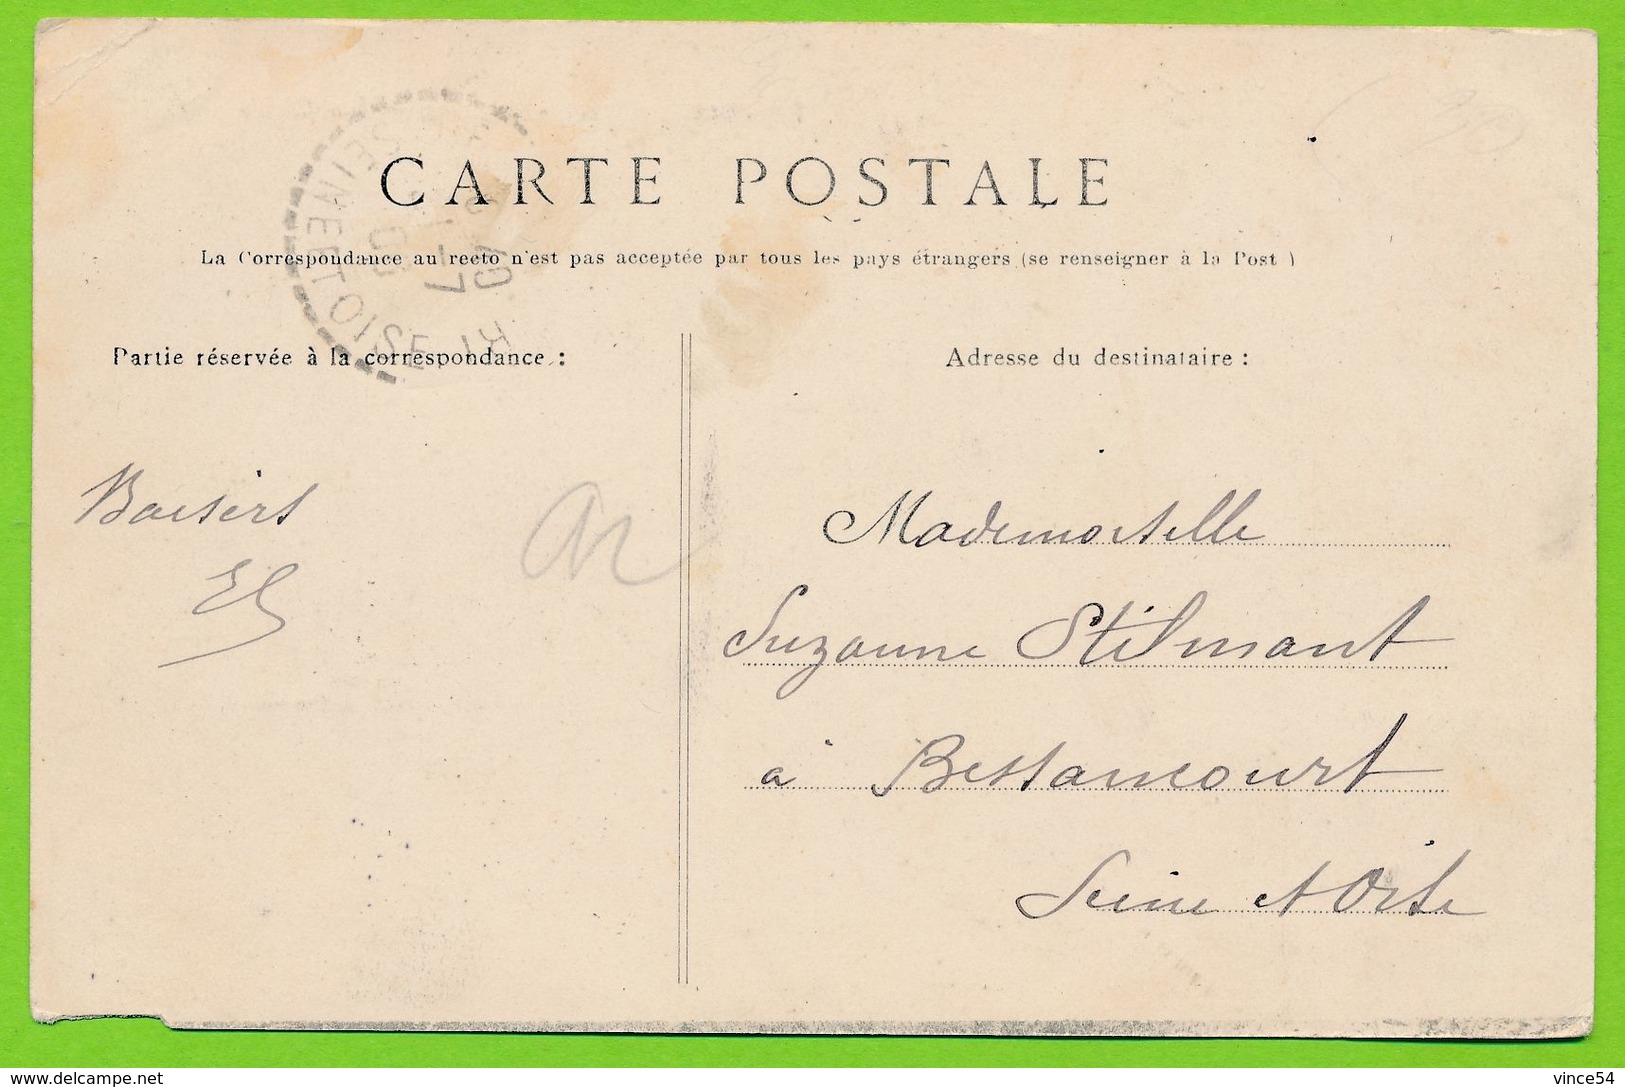 CARTE POSTALE
La Correspondance au recto n'est pas acceptée par tous les pays étrangers (se renseigner à la Post )
SEINE ET OISE
Partie réservée à la correspondance :
Adresse du destinataire :
Baisers
Mademoiselle
Suzanne Stilmant
à Bessancourt
Seine et Oise
delcampe.net
vince54